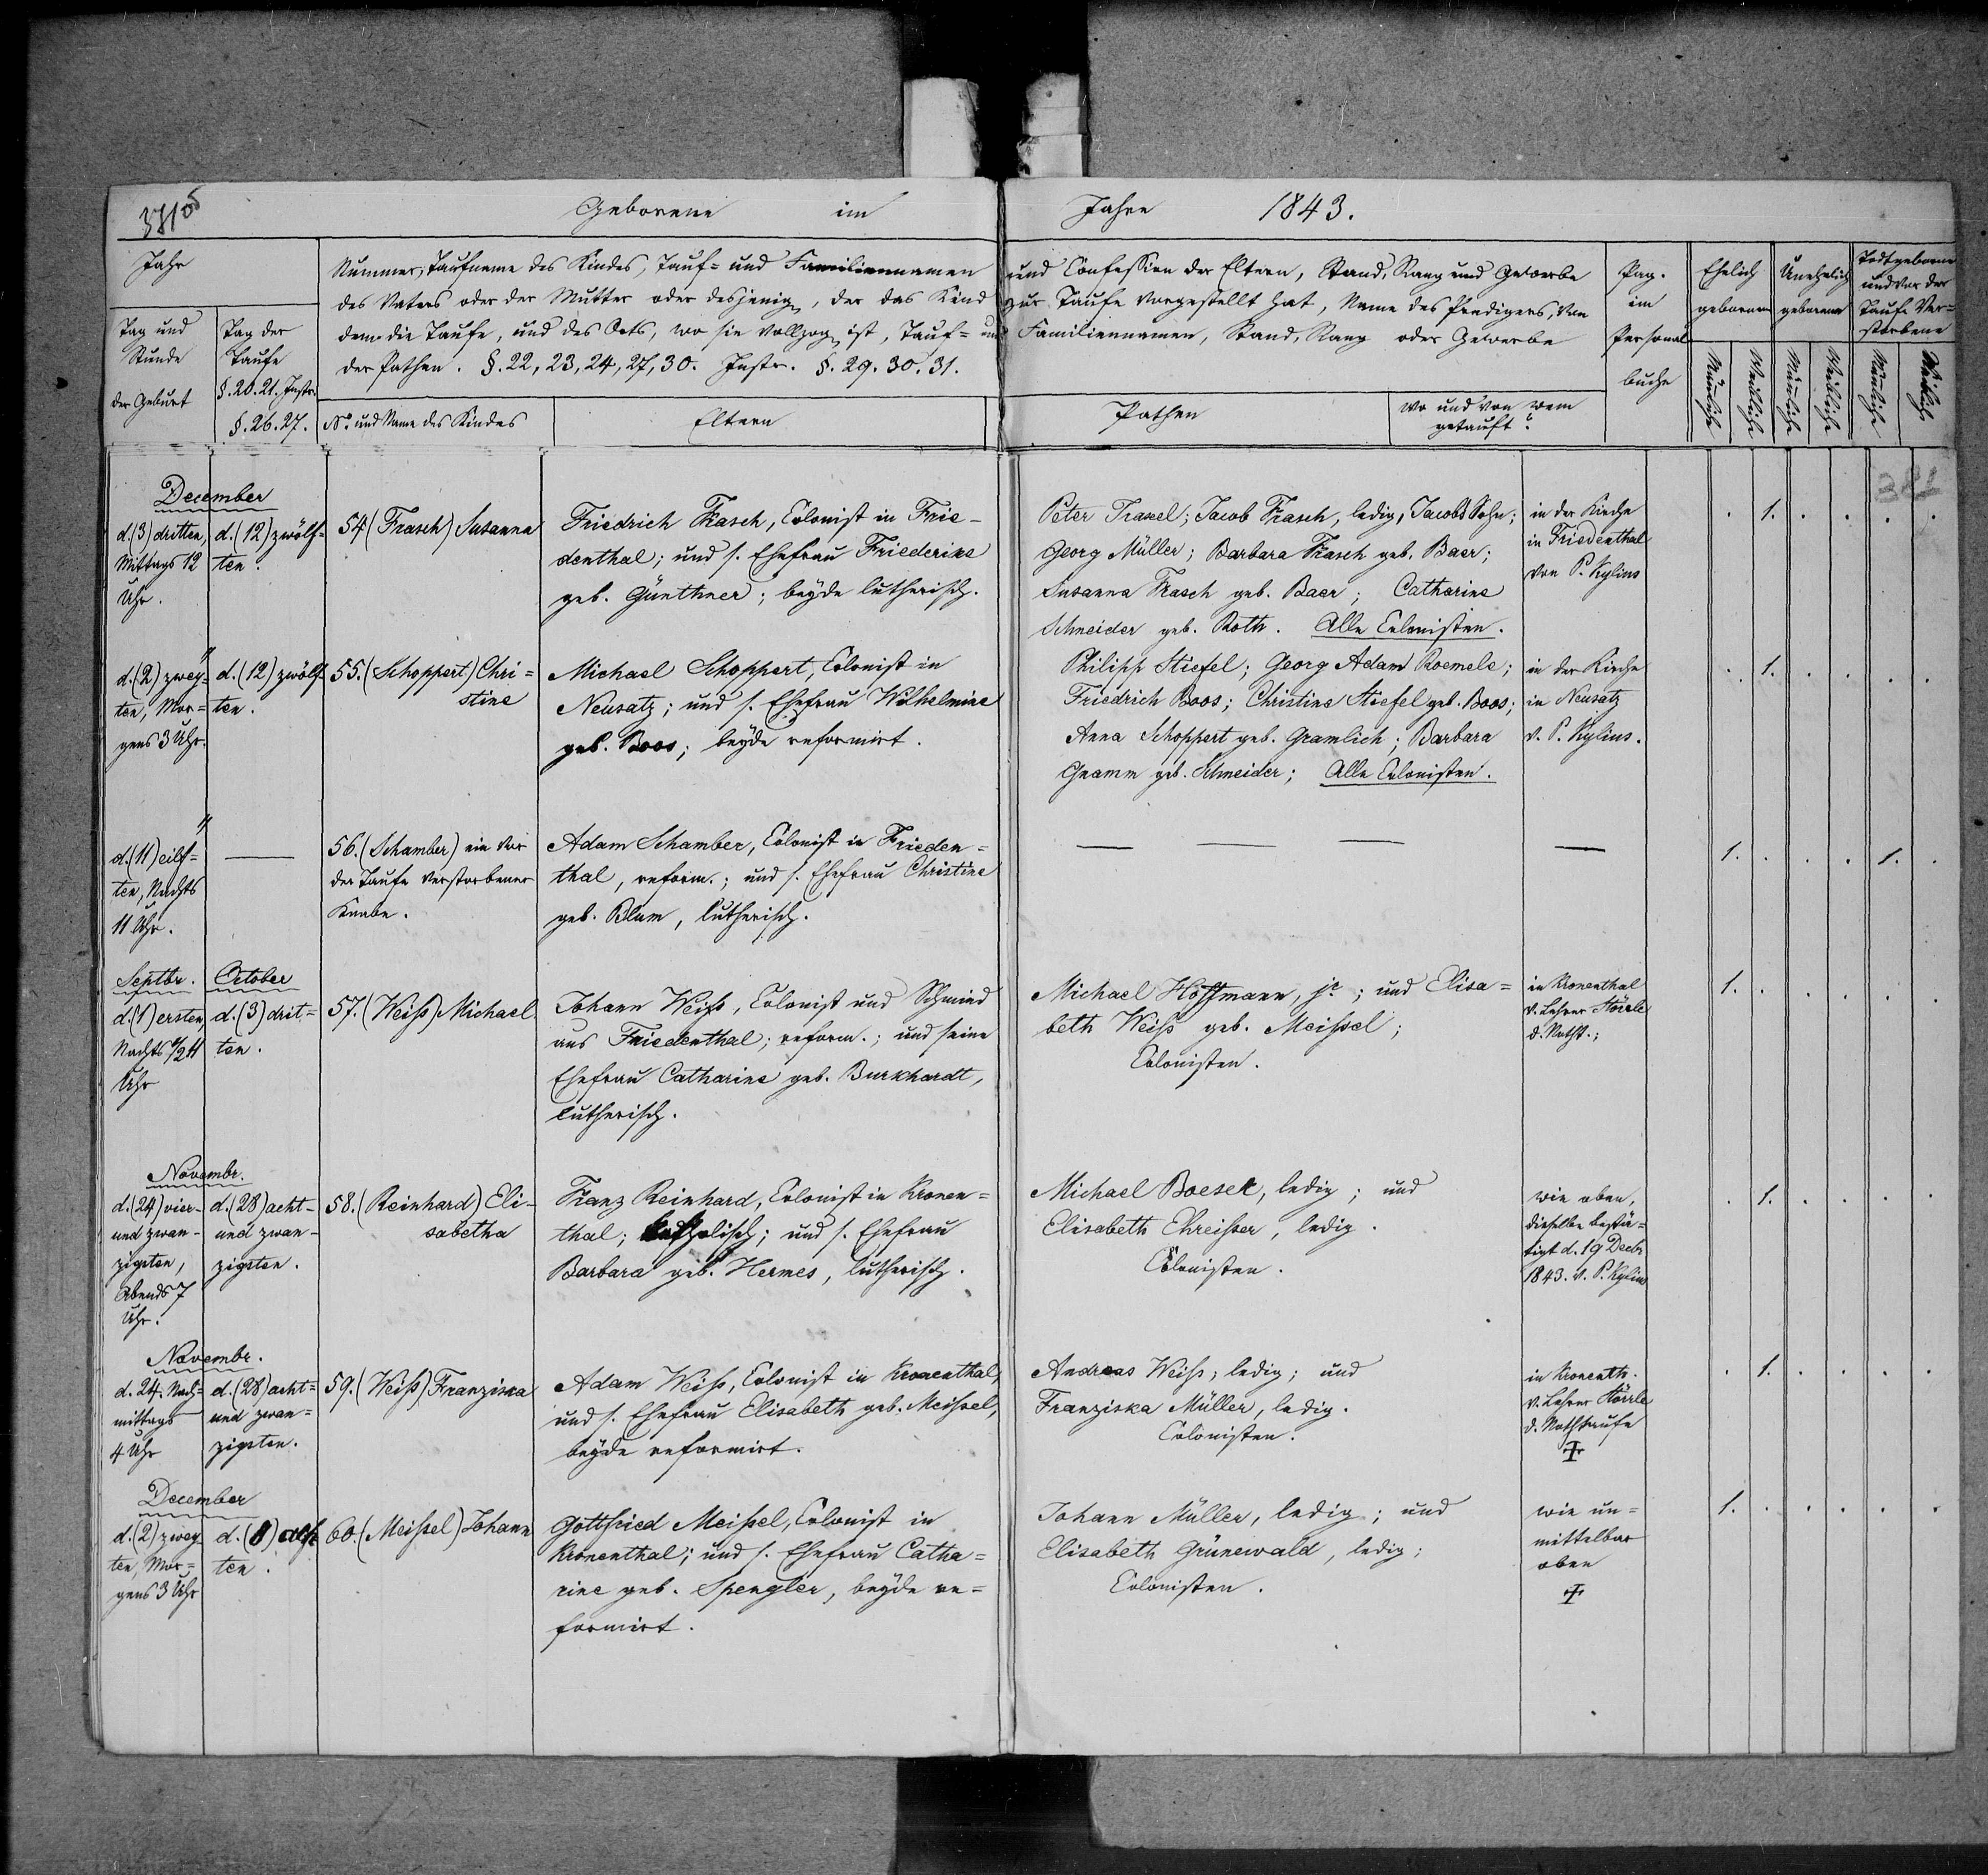 Geborene im Jahre 1843.
Jahr
Tag und Stunde der Geburt
Tag der Taufe §. 20. 21. Instr. §. 26. 27.
Nummer, Taufname des Kindes, Tauf= und Familiennamen und Confession der Eltern, Stand, Rang und Gewerbe
des Vaters oder der Mutter oder desjenig, der das Kind zur Taufe vorgestellt hat, Name des Predigers, von
dem die Taufe, und des Orts, wo sie vollzog ist, Tauf= und Familiennamen, Stand, Rang oder Gewerbe
der Pathen. §. 22, 23, 24, 27, 30. Instr. §. 29. 30. 31.
No. und Name des Kindes
Eltern
Pathen
wo und von wem
getauft?
Pag.
im
Personal
buche
Ehelich
geborene
Unehelich
geborene
Todtgeborene
und vor der
Taufe Ver=
storbene
Männliche
Weibliche
Männliche
Weibliche
Männliche
Weibliche
381
December
d. (3) dritten,
Mittags 12
Uhr.
d. (12) zwölf=
ten.
54 (Frasch) Susanna
Friedrich Frasch, Colonist in Frie-
denthal; und s. Ehefrau Friederike
geb. Günthner; beyde lutherisch.
Peter Traxel; Jacob Frasch, ledig, Jacobs Sohn;
Georg Müller; Barbara Frasch geb. Baer;
Susanna Frasch geb. Baer; Catharine
Schneider geb. Roth. Alle Colonisten.
in der Kirche
in Friedenthal
von P. Kylius
1.
"
d. (2) zwey=
ten, Mor=
gens 3 Uhr.
d. (12) zwölf
ten.
55. (Schoppert) Chri=
stine
Michael Schoppert, Colonist in
Neusatz; und s. Ehefrau Wilhelmine
geb. Boos; beyde reformirt.
Philipp Stiefel; Georg Adam Roemele;
Friedrich Boos; Christine Stiefel geb. Boos;
Anna Schoppert geb. Gramlich; Barbara
Gramm geb. Schneider; Alle Colonisten.
in der Kirche
in Neusatz
v. P. Kylius.
1.
"
d. (11) eilf=
ten, Nachts
11 Uhr.
—
56. (Schamber) ein vor
der Taufe verstorbener
Knabe.
Adam Schamber, Colonist in Frieden=
thal, reform.; und s. Ehefrau Christine
geb. Blum, lutherisch.
— — — —
1. 1.
Septbr.
d. (1) ersten,
Nachts 1/2 11
Uhr
October
d. (3) drit=
ten.
57. (Weiß) Michael
Johann Weiß, Colonist und Schmied
aus Friedenthal; reform.; und seine
Ehefrau Catharine geb. Burkhardt,
lutherisch.
Michael Hoffmann, jr; und Elisa=
beth Weiß geb. Meißel;
Colonisten.
in Kronenthal
v. Lehrer Störrle
d. Notht.;
1.
Novembr.
d. (24) vier-
und zwan-
zigsten,
Abends 7
Uhr.
d. (28) acht-
und zwan-
zigsten.
58. (Reinhard) Eli-
sabetha
Franz Reinhard, Colonist in Kronen=
thal; katholisch; und s. Ehefrau
Barbara geb. Hermes, lutherisch.
Michael Boeser, ledig; und
Elisabeth Ehreißer, ledig.
Colonisten.
wie oben.
dieselbe bestä=
tigt d. 19 Decbr
1843. v. P. Kylius
1.
Novembr.
d. 24. Nach=
mittags
4 Uhr
d. (28) acht=
und zwan=
zigsten.
59. (Weiß) Franziska
Adam Weiß, Colonist in Kronenthal,
und s. Ehefrau Elisabeth geb. Meißel,
beyde reformirt.
Andreas Weiß, ledig; und
Franziska Müller, ledig.
Colonisten.
in Kronenth.
v. Lehrer Störrle
d. Nothtaufe
1.
December
d. (2) zwey
ten, Mor=
gens 3 Uhr
ten.
60. (Meißel) Johann
Gottfried Meißel, Colonist in
Kronenthal; und s. Ehefrau Catha=
rine geb. Spengler, beyde re=
formirt.
Johann Müller, ledig; und
Elisabeth Grünewald, ledig;
Colonisten.
wie un=
mittelbar
oben
1.